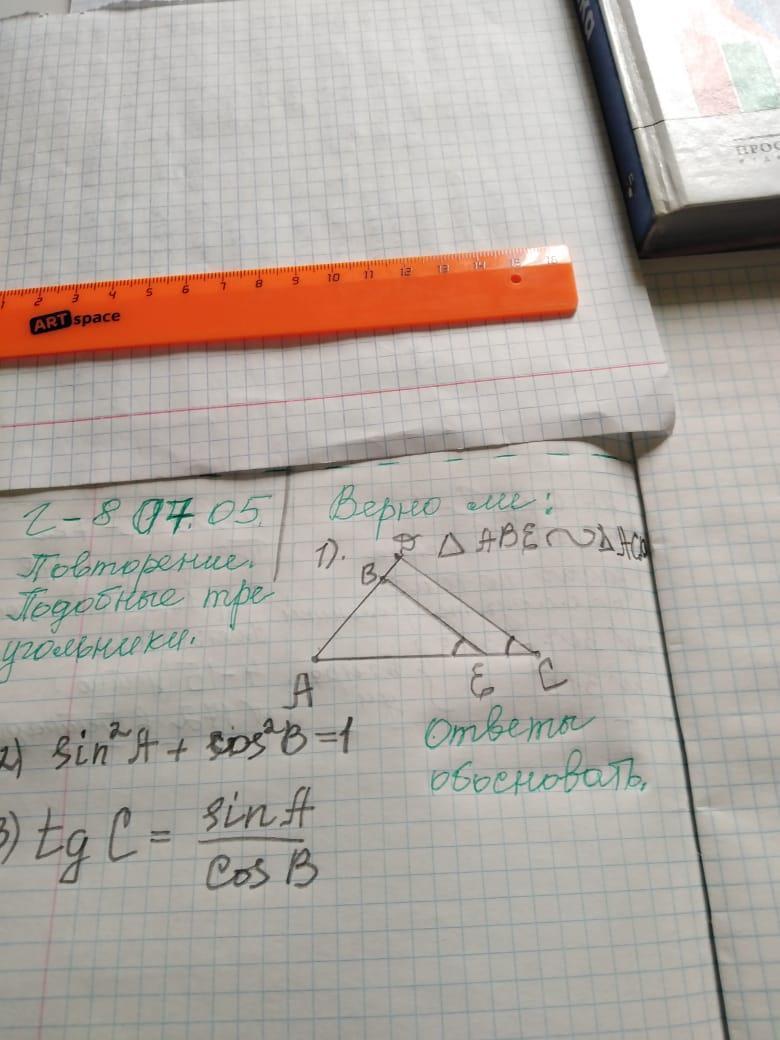 1 2 3 4 5 6 7 8 9 10 11 12 13 14 15 16
ARTspace
Г-8 07.05.
Повторение.
Подобные тре
угольники.
Верно ли:
1). Δ ABE ∾ Δ ACD
D
B
A
E
C
2) sin²A + cos²B=1
3) tg C = sin A / cos B
Ответы
обосновать.